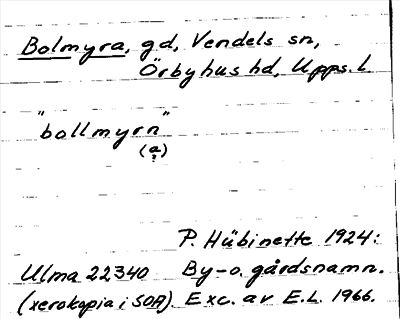 Bolmyra, gd, Vendels sn,
Örbyhus hd, Upps. l.
"bollmyrn"
(a?)
P. Hübinette 1924:
Ulma 22340 By- o. gårdsnamn.
(xerokopia i SOA) Exc. av E.L. 1966.